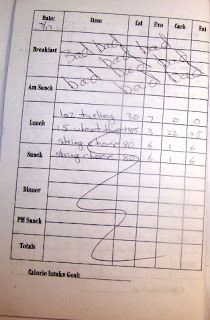 Date: Item Cal Pro Carb Fat
Breakfast bad bad bad
bad bad bad
bad bad bad
Am Snack bad
1oz turkey 30 7 0 0
Lunch 15 wheat 3 22
string cheese 80 6 1 6
Snack string cheese 80 6 1 6
Dinner
PM Snack
Totals
Calorie Intake Goal: